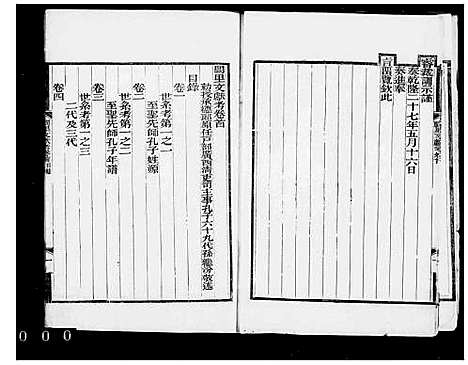 睿鑒謹示謹
奏乾隆二十七年五月十六日
奏進奉
旨留覽欽此
闕里文獻考卷首
勅授承德郎原任戶部廣西清吏司主事孔子六十九代孫繼汾敬述
目錄
卷一
世系考第一之一
至聖先師孔子姓源
卷二
世系考第一之二
至聖先師孔子年譜
卷三
世系考第一之三
二代及三代
卷四
000